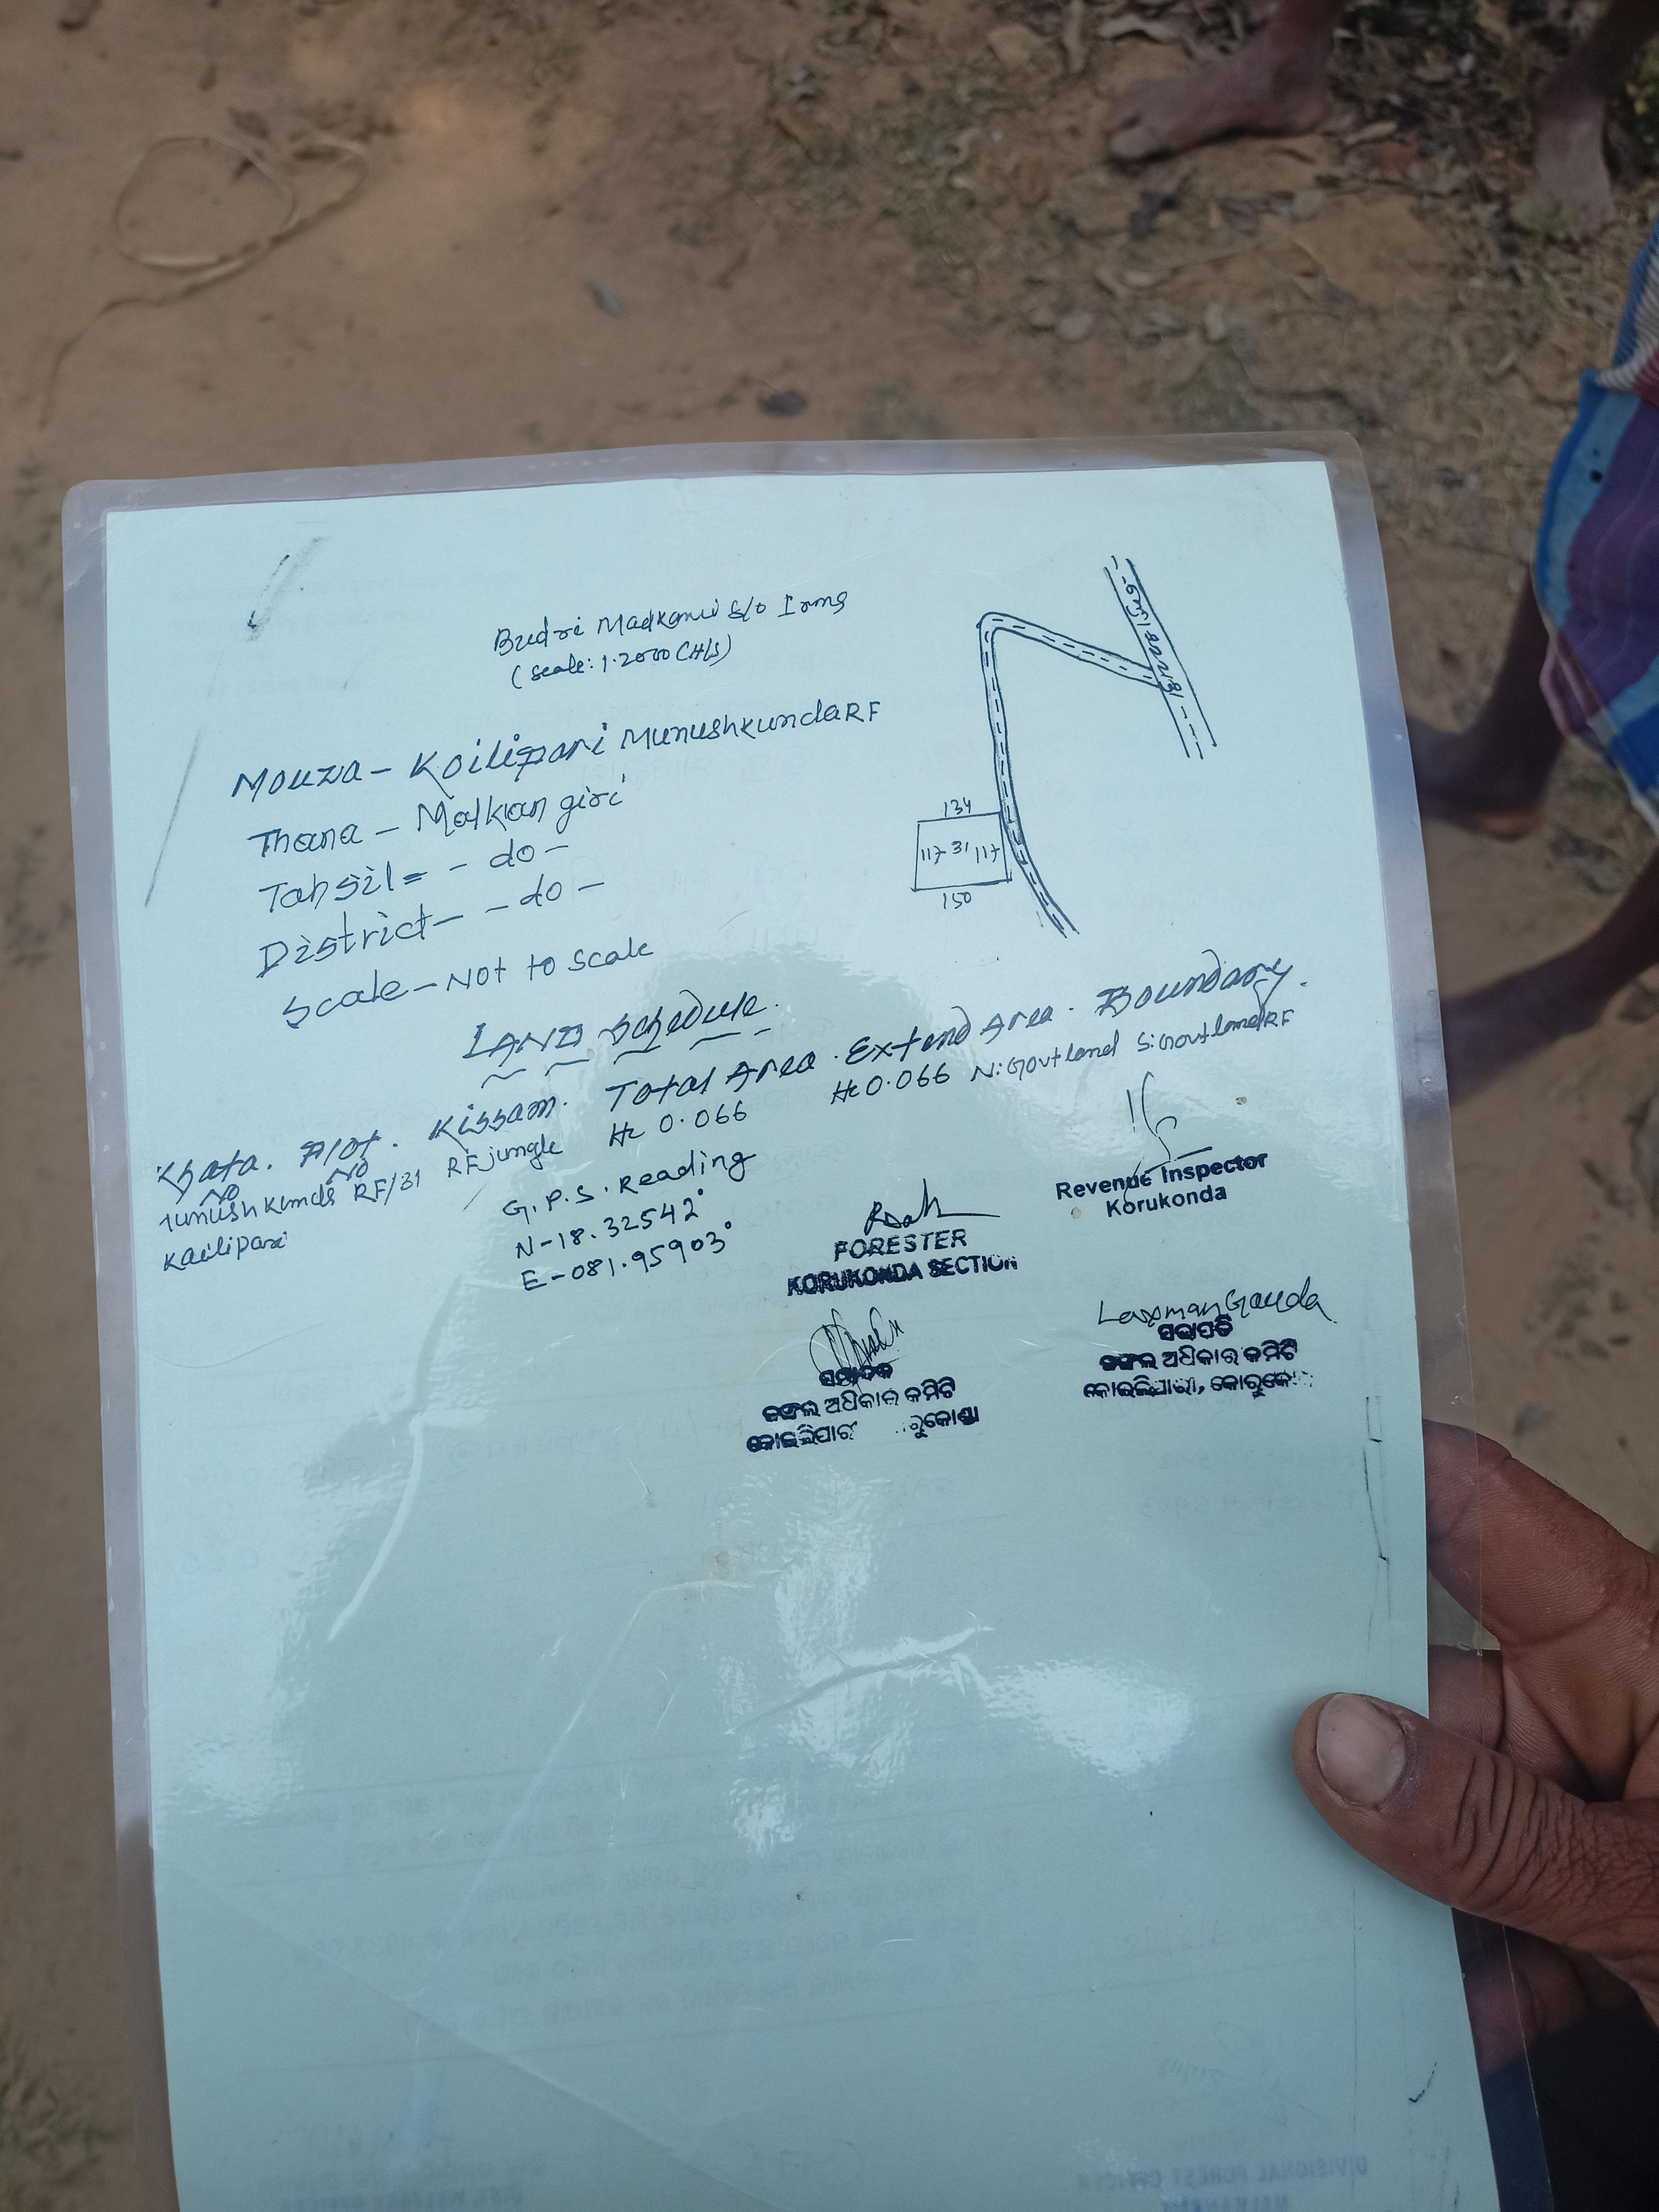 Budri Madkami S/o Irma
(Scale: 1.2000 CH/S)
Mouza - Koilipari Munushkunda RF
Thana - Malkangiri
Tahsil = - do -
District - - do -
Scale - Not to Scale
134
117 31 117
150
LAND Schedule.
Khata. Plot. Kissam. Total Area. Extend Area. Boundary.
No No
RF/31 RF jungle Hc 0.066 Hc 0.066 N: Govt land S: Govt land RF
Kailipari
G.P.S. Reading
N-18.32542°
E-081.95903°
Revenue Inspector
Korukonda
FORESTER
KORUKONDA SECTION
Laxman Gouda
ସମ୍ପାଦକ
ଜଙ୍ଗଲ ଅଧିକାର କମିଟି
କୋଇଲିପାରୀ
ସଭାପତି
ଜଙ୍ଗଲ ଅଧିକାର କମିଟି
କୋଇଲିପାରୀ,